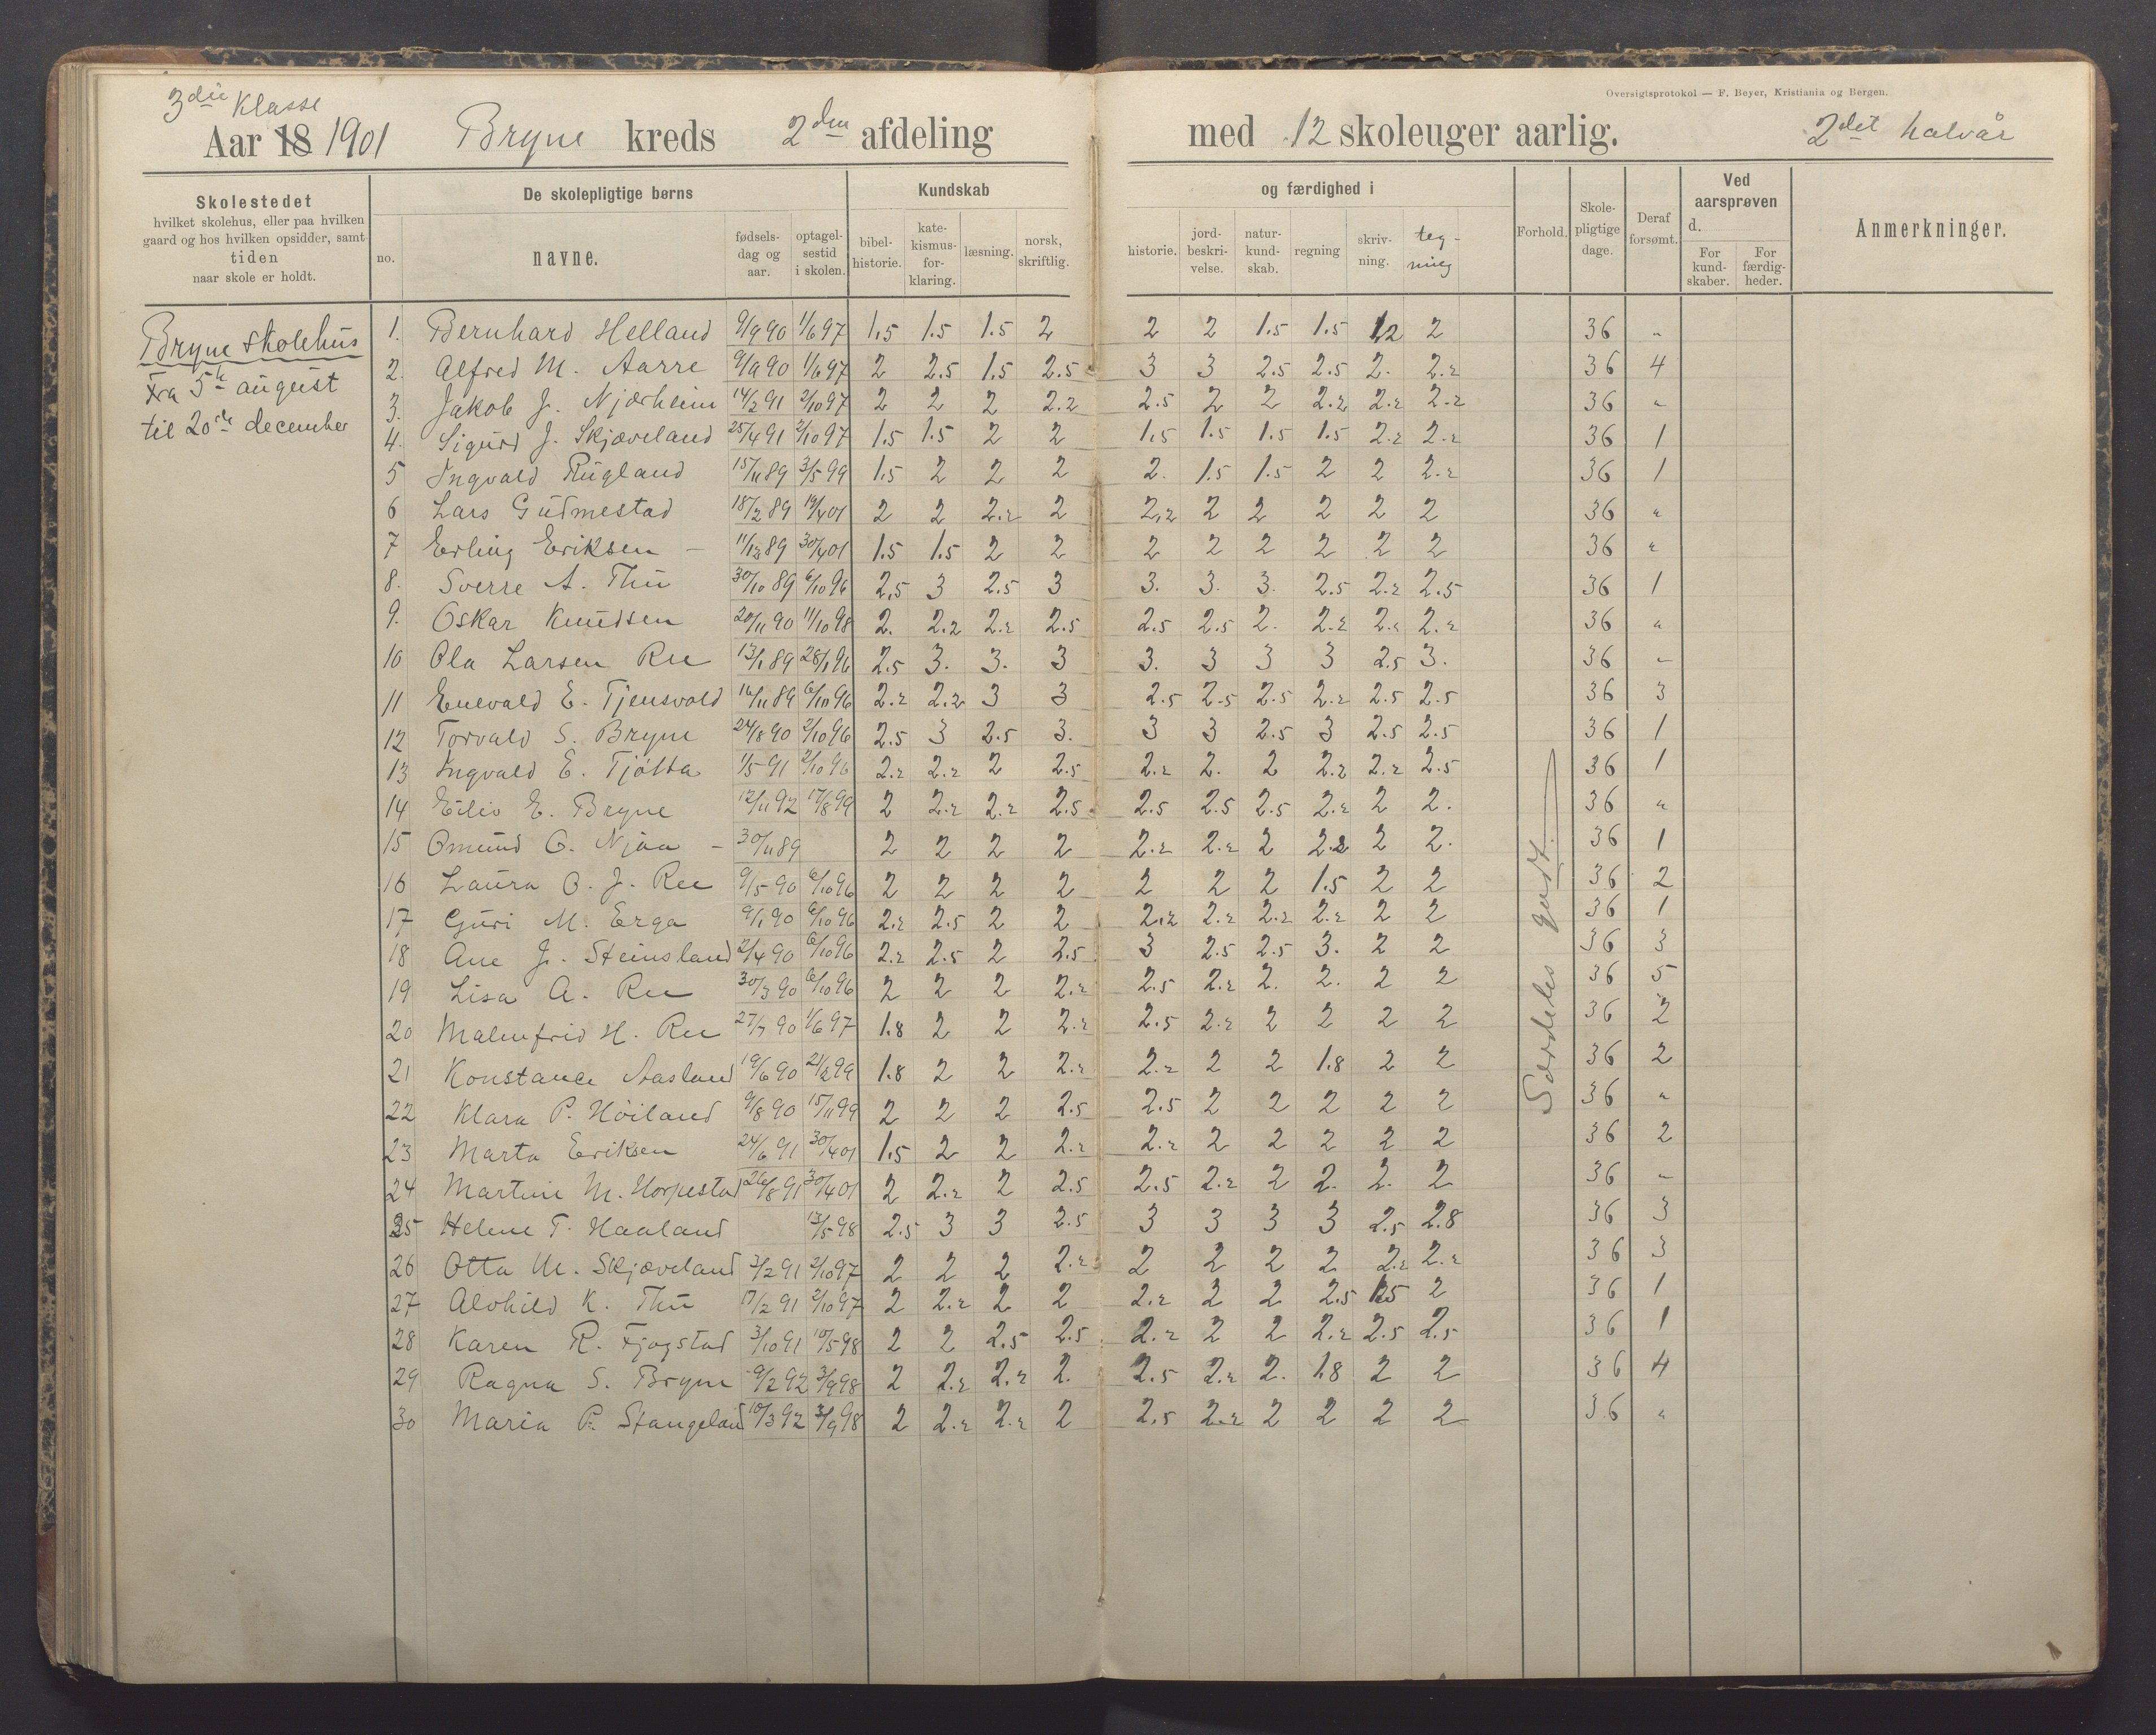 3die Klasse
Aar 18 1901 Bryne kreds 2den afdeling med 12 skoleuger aarlig. 2det halvår
Oversigtsprotokol — F. Beyer, Kristiania og Bergen.
Skolestedet
hvilket skolehus, eller paa hvilken
gaard og hos hvilken opsidder, samt
tiden
naar skole er holdt.
De skolepligtige børns
no.
navne.
fødsels-dag og aar.
optagel-sestid i skolen.
Kundskab
bibel-historie.
kate-kismus-for-klaring.
læsning.
norsk, skriftlig.
og færdighed i
historie.
jord-beskri-velse.
natur-kund-skab.
regning
skriv-ning.
teg-ning
Forhold.
Skole-pligtige dage.
Deraf forsømt.
Ved aarsprøven
d.
For kund-skaber.
For færdig-heder.
Anmerkninger.
Bryne skolehus
Fra 5te august
til 20de december
1. Bernhard Helland 9/9 90 1/6 97 1,5 1.5 1.5 2 2 2 1.5 1.5 2 2 36 "
2. Alfred M. Aarre 9/9 90 1/6 97 2 2.5 1.5 2.5 3 3 2.5 2.5 2. 2.2 36 4
3. Jakob J. Njærheim 14/2 91 2/10 97 2 2 2 2.2 2.5 2 2 2.2 2.2 2.2 36 "
4. Sigurd J. Skjæveland 25/4 91 2/10 97 1.5 1.5 2 2 1,5 1.5 1.5 1.5 2.2 2.2 36 1
5 Ingvald Rugland 15/11 89 3/5 99 1,5 2 2 2 2. 1.5 1.5 2 2 2.2 36 1
6 Lars Gudmestad 18/2 89 19/4 01 2 2 2.2 2 2,2 2 2 2 2 2 36 "
7 Erling Eriksen – 11/12 89 30/4 01 1.5 1.5 2 2 2 2 2 2 2 2 36 "
8. Sverre A. Thu 30/10 89 6/10 96 2,5 3 2.5 3 3. 3. 3. 2.5 2.2 2.5 36 1
9. Oskar Knudsen 20/11 90 11/10 98 2. 2.2 2.2 2.5 2.5 2.5 2. 2.2 2.2 2.2 36 "
10 Ola Larsen Ree 13/1 89 28/1 96 2.5 3. 3. 3 3. 3 3 3 2.5 3. 36 "
11 Enevald E. Tjensvold 16/11 89 6/10 96 2.2 2.2 3 3 2.5 2.5 2.5 2.2 2.5 2.5 36 3
12 Torvald S. Bryne 24/8 90 2/10 96 2.5 3 2.5 3. 3 3 2.5 3 2.5 2.5 36 1
13 Ingvald E. Tjøtta 1/5 91 2/10 96 2.2 2.2 2 2.5 2.2 2. 2 2.2 2.2 2.5 36 1
14 Eiliv E. Bryne 12/11 92 17/8 99 2 2.2 2.2 2.5 2.5 2.5 2.5 2.2 2 2. 36 "
15 Omund O. Njåa – 30/11 89 2 2 2 2 2.2 2.2 2 2.2 2 2. 36 1
16 Laura O. J. Ree 9/5 90 6/10 96 2 2 2 2 2 2 2 1.5 2 2 36 2
17 Guri M. Erga 9/1 90 6/10 96 2.2 2.5 2 2 2,2 2.2 2.2 2.2 2 2 36 1
18 Ane J. Steinsland 2/4 90 6/10 96 2.2 2.5 2 2.5 3 2.5 2.5 3. 2 2 36 3
19 Lisa A. Ree 30/3 90 6/10 96 2 2 2 2.2 2.5 2.2 2. 2. 2 2 36 5
20 Malmfrid H. Ree 27/7 90 1/6 97 1.8 2 2 2.2 2.5 2.2 2 2 2 2 36 2
21 Konstance Aasland 19/6 90 21/2 99 1.8 2 2 2.2 2.2 2 2 1.8 2 2 36 2
22 Klara P. Høiland 9/8 90 15/11 99 2 2 2 2.5 2.5 2 2 2 2 2 36 "
23 Marta Eriksen 24/6 91 30/4 01 1.5 2 2 2.2 2.2 2 2 2 2 2 36 2
24 Martine M. Horpestad 26/8 91 30/4 01 2 2.2 2 2.5 2.5 2.2 2 2. 2. 2 36 "
25 Helene T. Haaland 13/5 98 2.5 3 3 2.5 3 3 3 3 2.5 2.8 36 3
26 Otta M. Skjæveland 3/2 91 2/10 97 2 2 2 2.2 2 2 2 2 2.2 2.2 36 3
27 Alvhild K. Thu 17/2 91 2/10 97 2 2.2 2 2 2.2 2 2 2.5 2.5 2 36 1
28 Karen R. Fjogstad 3/10 91 10/5 98 2 2 2.5 2.5 2.2 2 2 2.2 2.5 2.5 36 1
29 Ragna S. Bryne 9/2 92 3/9 98 2 2.2 2.2 2. 2.5 2.2 2. 1.8 2 2 36 4
30 Maria P. Stangeland 10/3 92 3/9 98 2 2.2 2.2 2 2.5 2.2 2 2 2 2 36 "
Særdeles godt.